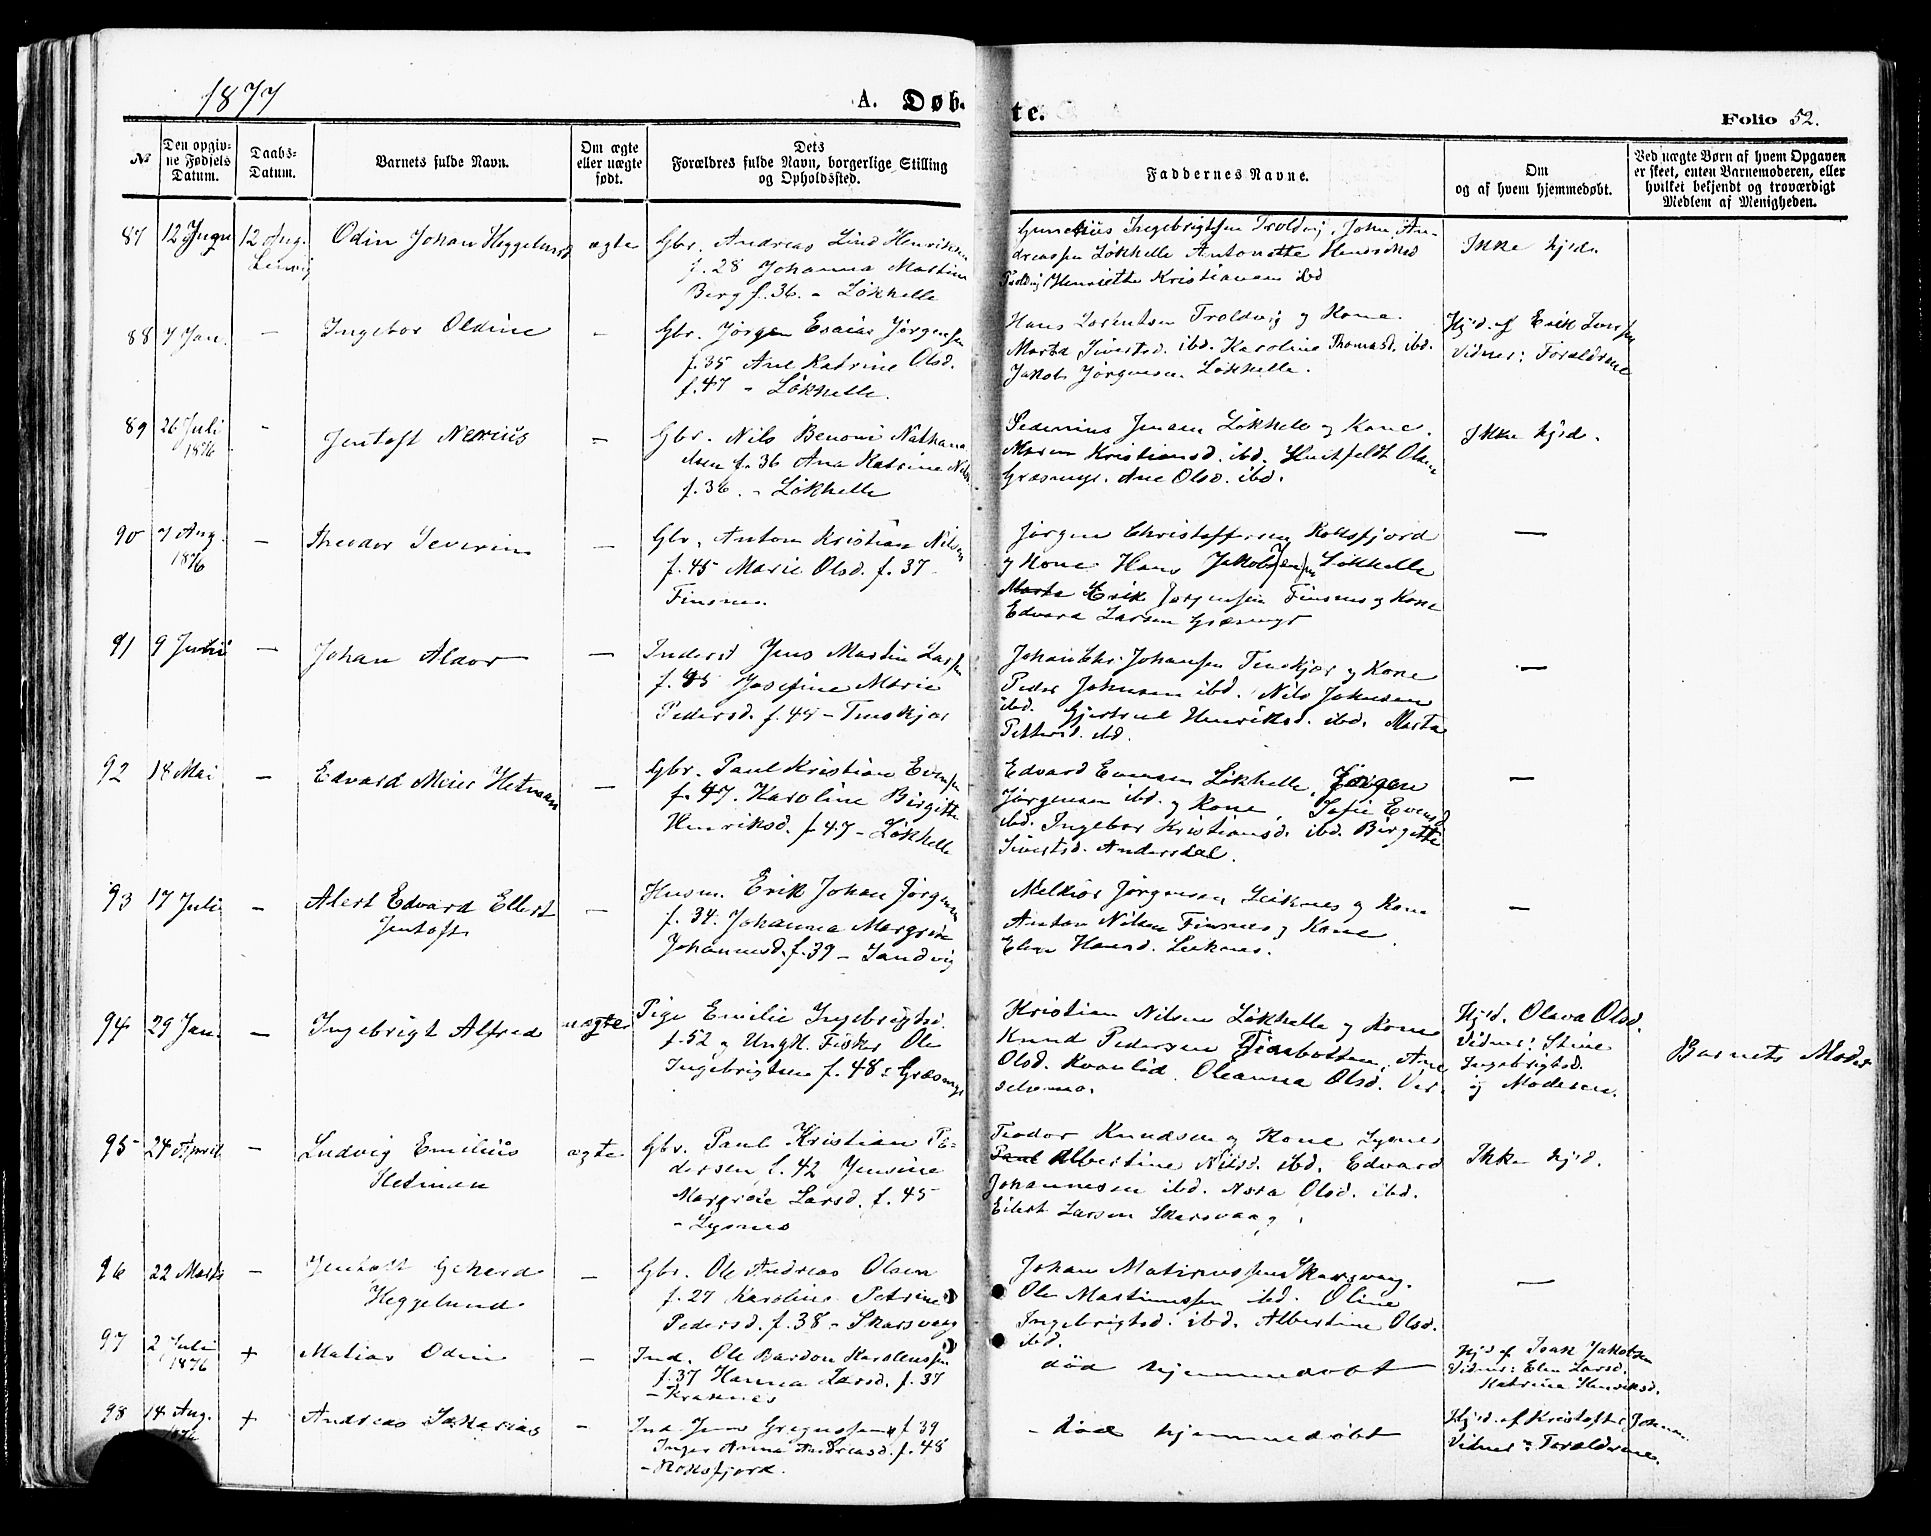 1877
A. Døbte.
Folio 52.
№
Den opgivne Fødsels Datum.
Daabs-Datum.
Barnets fulde Navn.
Om ægte eller uægte født.
Dets Forældres fulde Navn, borgerlige Stilling og Opholdssted.
Faddernes Navne.
Om og af hvem hjemmedøbt.
Ved uægte Børn af hvem Opgaven er skeet, enten Barnemoderen, eller hvilket bekjendt og troværdigt Medlem af Menigheden.
87 12 12 Aug. Odin Johan Heggelund ægte
Gbr. Andreas Lind Henriksen
f. 28 Johanna Martine
Berg f. 36. - Løkhelle
Ingebrigtsen Troldvig, John An-
dreassen Løkhelle Antonette
Henriette Kristiansen ibd
Ikke hjd.
88 7 Jan. - Ingebor Oldine -
Gbr. Jørgen Esaias Jørgensen
f. 35 Ane Katrine Olsd.
f. 47 - Løkhelle.
Hans Lorentsen Troldvig og Kone.
Marta Sivertsd. ibd. Karoline Thomasd. ibd.
Jakob Jørgensen Løkhelle.
Hjd. af Erik
Vidner: Forældrene
89 26 Juli 1876 - Jentoft Nerius -
Gbr. Nils Benoni Nathana
elsen f. 36 Ana Katrine Nilsd
f. 36. - Løkhelle
Pedenius Jensen Løkhelle og Kone.
Maren Kristiansd. ibd. Huitfeldt Olsen
Græsmyr. Ane Olsd. ibd.
Ikke hjd.
90 7 Aug. 1876 - Theodor Severin -
Gbr. Anton Kristian Nilsen
f. 45 Marie Olsd. f. 37
Finsnes.
Jørgen Christoffersen Rossfjord
og Kone Hans Jakob Jensen Løkhelle
Marta Erik Jørgensen Finsnes og Kone
Edvard Larsen Græsmyr
-
91 9 Juli - Johan Aldor -
Inderst Jens Martin Larsen
f. 45 Josefine Marie
Pedersd. f. 44 - Tinskjær
Johan Chr. Johansen Tinskjær og Kone
Peder Johnsen ibd. Nils Johnsen
ibd. Gjertrud Henriksd. ibd. Marta
Pettersd. ibd.
-
92 18 Mai - Edvard Meier Hetman -
Gbr. Paul Kristian Evensen
f. 47. Karoline Birgitte
Henriksd. f 47 - Løkhelle
Edvard Evensen Løkhelle, Jørgen
Jørgensen ibd. og Kone, Sofie Evensd
ibd. Ingebor Kristiansd. ibd. Birgitte
Sivertsd. Andersdal.
-
93 17 Juli - Alert Edvard Ellert
Jentoft -
Husm. Erik Johan Jørgensen
f. 34. Johanna Margrete
Johannesd. f. 39 - Sandvig
Melkior Jørgensen Leiknes og Kone
Anton Nilsen Finsnes og Kone
Elen Hansd. Leiknes.
-
94 29 Jan. - Ingebrigt Alfred uægte
Pige Emilie Ingebrigtsd.
f. 52 og Ungk. Fisker Ole
Ingebrigtsen f. 48: Græsmyr
Kristian Nilsen Løkhelle og Kone
Knud Pedersen Fiærbotten, Ane
Olsd. Kvanlid. Oleanna Olsd. Ver-
Hjd. Oleva Olsd.
Vidner: Stine
Ingebrigtsd.
og Moderen.
Barnets Moder
95 24 April - Ludvig Emilius
Hetman ægte
Gbr. Paul Kristian Pe-
dersen f. 42 Jensine
Margrete Larsd. f. 45
- Lysnes
Teodor Knudsen og Kone Lysnes
Paul Albertine Nilsd. ibd. Edvard
Johannesen ibd. Nora Olsd. ibd.
Eilert Larsen Skarsvaag.
Ikke hjd.
96 22 Marts - Jentoft Gerhard
Heggelund -
Gbr. Ole Andreas Olsen
f. 27 Karoline Petrine
Pedersd. f. 38 - Skarsvaag
Johan Skarsvaag.
Ole Martinussen ibd. Oline
Ingebrigtsd. ibd. Albertine Olsd.
ibd.
-
97 2 Juli 1876 + Matias Odin -
Ind. Ole Bardon Karolussen
f. 37 Hanna Larsd. f. 37
- Kraknes
død hjemmedøbt
Hjd af Isak Jakobsen
Vidner: Elen Larsd.
Katrine Henriksd.
98 14 Aug. 1876 + Andreas Sakarias -
Ind. Jens f 39
Inger Anna Andreasd. f. 48
- Rossfjord.
- død hjemmedøbt
Hjd. af Kristoffer Johnsen
Vidner: Forældrene.